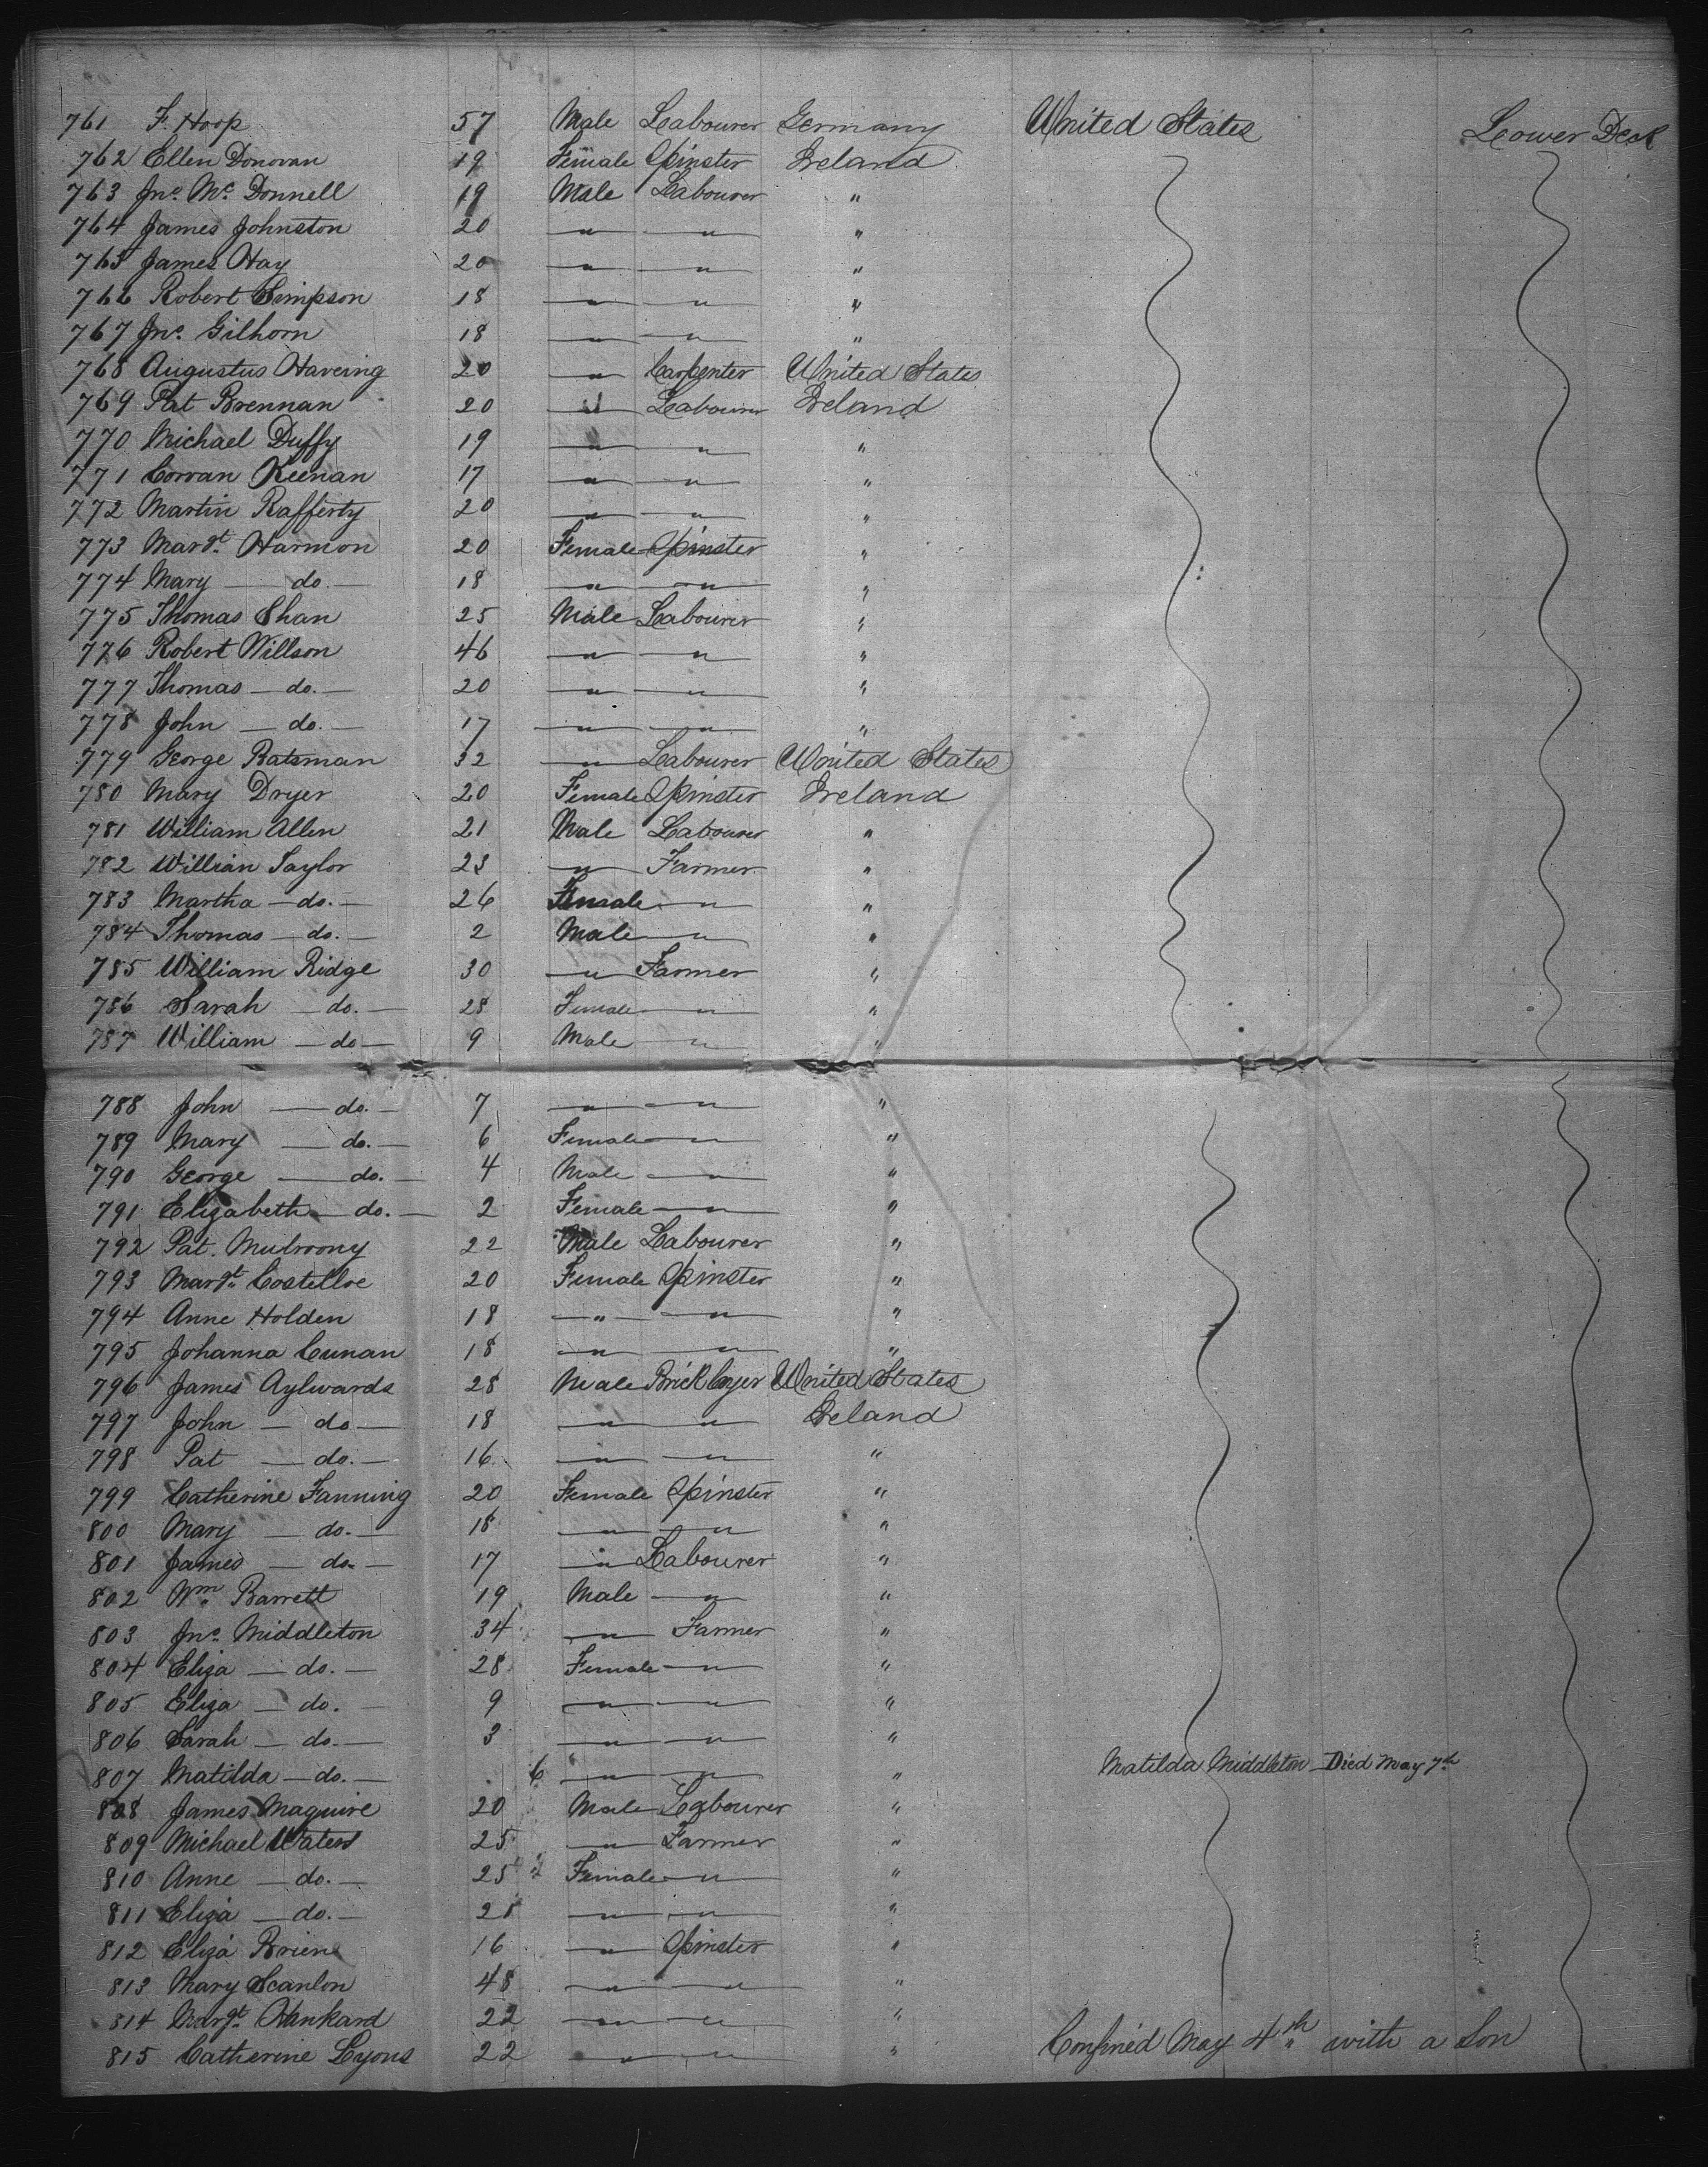 761 F. Hoop 57 Male Labourer Germany United States Lower Deck
762 Ellen Donovan 19 Female Spinster Ireland
763 Jno. Mc. Donnell 19 Male Labourer "
764 James Johnston 20 — " — — " — "
765 James Hay 20 — " — — " — "
766 Robert Simpson 18 — " — — " — "
767 Jno. Gilhorn 18 — " — — " — "
768 Augustus Havering 20 — " Carpenter United States
769 Pat Brennan 20 — " — Labourer Ireland
770 Michael Duffy 19 — " — — " — "
771 Corvan Keenan 17 — " — — " — "
772 Martin Rafferty 20 — " — — " — "
773 Margt. Harmon 20 Female Spinster "
774 Mary — do. — 18 — " — — " — "
775 Thomas Shan 25 Male Labourer "
776 Robert Willson 46 — " — — " — "
777 Thomas — do. — 20 — " — — " — "
778 John — do. — 17 — " — — " — "
779 George Batsman 32 — " Labourer United States
780 Mary Dryer 20 Female Spinster Ireland
781 William Allen 21 Male Labourer "
782 William Taylor 23 — " — Farmer "
783 Martha — do. — 26 Female — " — "
784 Thomas — do. — 2 Male — " — "
785 William Ridge 30 — " Farmer "
786 Sarah — do. — 28 Female — " — "
787 William — do — 9 Male — " — "
788 John — do. — 7 — " — — " — "
789 Mary — do. — 6 Female — " — "
790 George — do. — 4 Male — " — "
791 Elizabeth — do. — 2 Female — " — "
792 Pat. Mulroony 22 Male Labourer "
793 Margt. Costelloe 20 Female Spinster "
794 Anne Holden 18 — " — — " — "
795 Johanna Cunan 18 — " — — " — "
796 James Aylwards 28 Male Bricklayer United States
797 John — do — 18 — " — — " — Ireland
798 Pat — do. — 16 — " — — " — "
799 Catherine Fanning 20 Female Spinster "
800 Mary — do. — 18 — " — — " — "
801 James — do. — 17 — " Labourer "
802 Wm. Barrett 19 Male — " — "
803 Jno. Middleton 34 — " — Farmer "
804 Eliza — do. — 28 Female — " — "
805 Eliza — do. — 9 — " — — " — "
806 Sarah — do. — 3 — " — — " — "
807 Matilda — do. — 6 — " — — " — " Matilda Middleton Died May 7th
808 James Maguire 20 Male Labourer "
809 Michael Waters 25 — " — Farmer "
810 Anne — do. — 25 Female — " — "
811 Eliza — do. — 21 — " — — " — "
812 Eliza Brien 16 — " — Spinster "
813 Mary Scanlon 48 — " — — " — "
814 Margt. Hankard 22 — " — — " — "
815 Catherine Lyons 22 — " — — " — " Confined May 4th with a Son